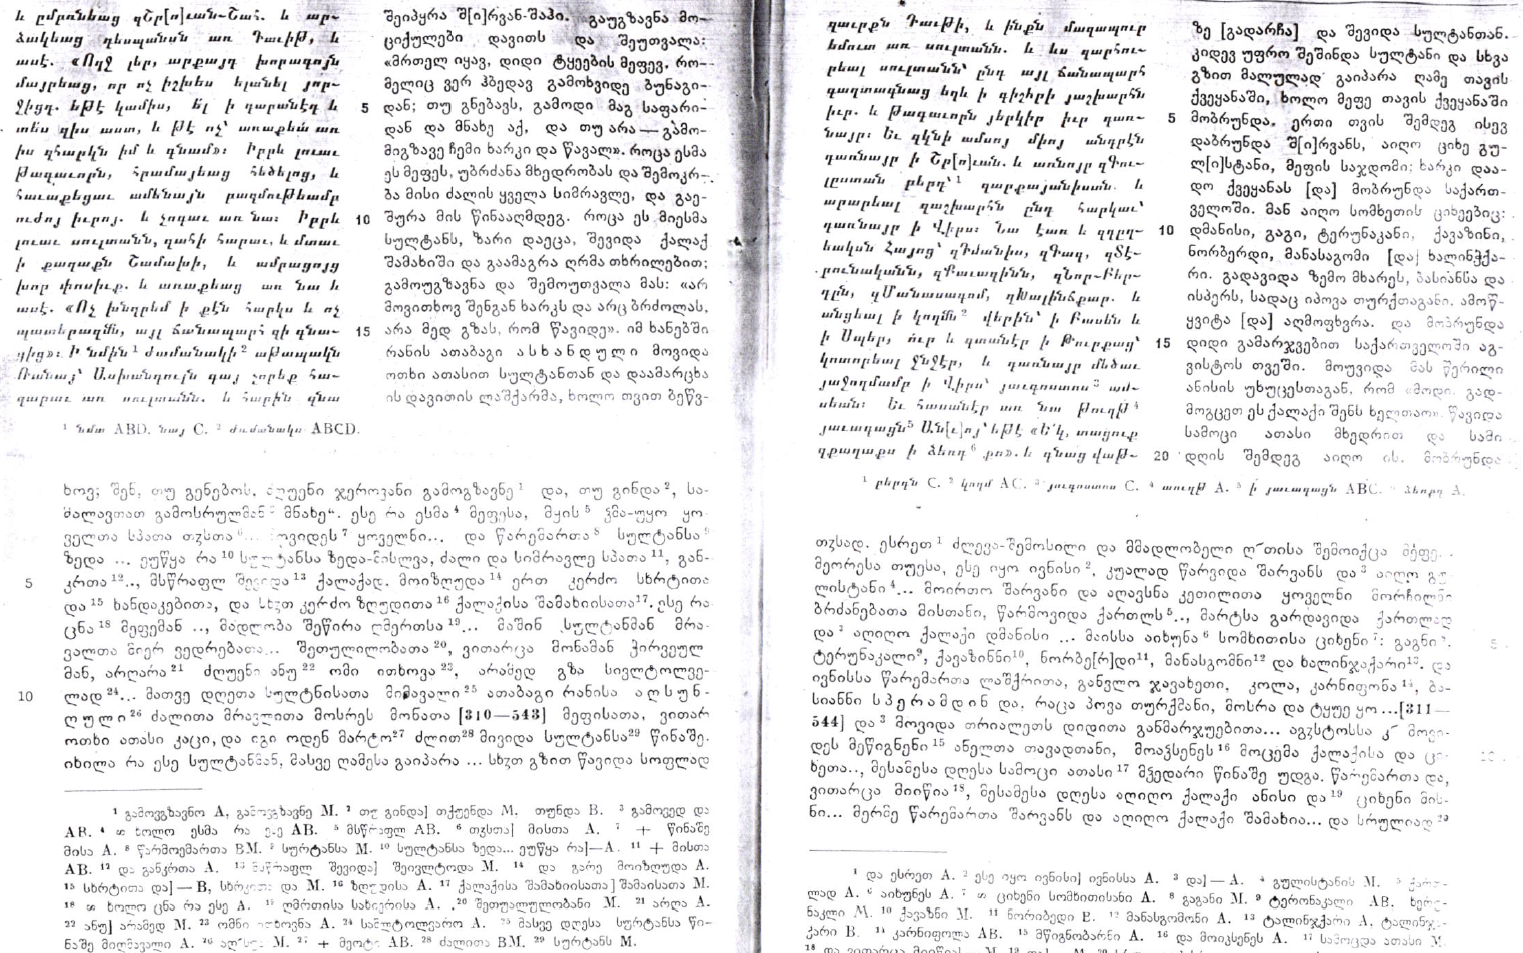 և ըմբռնեաց զՇր[ո]ւան-Շահ. և ար-
ձակեաց դեսպանսն առ Դաւիթ, և
ասէ. «Ողջ լեր, արքայդ խորագոյն
մայրեաց, որ ոչ իշխես ելանել յոր-
ջիցդ. եթէ կամիս, ել ի դարանէդ և
տես զիս աստ, և թէ ոչ՝ առաքեա առ
իս զհարկն իմ և գնամ»։ Իբրև լուաւ
թագաւորն, հրամայեաց հեծելոց, և
հաւաքեցաւ ամենայն բազմութեամբ
ուժոյ իւրոյ. և չոգաւ առ նա։ Իբրև
լուաւ սուլտանն, զահի հարաւ, և մտաւ
ի քաղաքն Շամախի, և ամրացոյց
խոր փոսիւք. և առաքեաց առ նա և
ասէ. «Ոչ խնդրեմ ի քէն հարկս և ոչ
պատերազմ, այլ ճանապարհ զի գնա-
ցից»։ Ի նմին¹ ժամանակի² աթապակն
Ռանայ՝ Ասխանդուլն գայ չորեք հա-
զարաւ առ սուլտանն. և հարին զնա
¹ նմա ABD. նայ C. ² ժամանակս ABCD.
შეიპყრა შ[ი]რვან-შაჰი. გაუგზავნა მო-
ციქულები დავითს და შეუთვალა:
«მრთელ იყავ, დიდი ტყეების მეფევ, რო-
მელიც ვერ ჰბედავ გამოხვიდე ბუნაგი-
5 დან; თუ გნებავს, გამოდი მაგ საფარი-
დან და მნახე აქ, და თუ არა — გამო-
მიგზავე ჩემი ხარკი და წავალ». როცა ესმა
ეს მეფეს, უბრძანა მხედრობას და შემოკრ-
ბა მისი ძალის ყველა სიმრავლე, და გაე-
10 შურა მის წინააღმდეგ. როცა ეს მიესმა
სულტანს, ზარი დაეცა, შევიდა ქალაქ
შამახიში და გაამაგრა ღრმა თხრილებით;
გამოუგზავნა და შემოუთვალა მას: «არ
მოვითხოვ შენგან ხარკს და არც ბრძოლას,
15 არა მედ გზას, რომ წავიდე». იმ ხანებში
რანის ათაბაგი ასხანდული მოვიდა
ოთხი ათასით სულტანთან და დაამარცხა
ის დავითის ლაშქარმა, ხოლო თვით ბეწვ-
ხოვ; შენ, თუ გენებოს, ძღუენი ჯეროვანი გამოგზავნე¹ და, თუ გინდა², სა-
მალავთათ გამოსრულმან³ მნახე“. ესე რა ესმა⁴ მეფესა, მყის⁵ ჴმა-უყო ყო-
ველთა სპათა თჳსთა⁶... მოვიდეს⁷ ყოველნი... და წარემართა⁸ სულტანსა⁹
ზედა ... ეუწყა რა¹⁰ სულტანსა ზედა-მისლვა, ძალი და სიმრავლე სპათა¹¹, გან-
5 კრთა¹².., მსწრაფლ შევიდა¹³ ქალაქად. მოიზღუდა¹⁴ ერთ კერძო სხრტითა
და¹⁵ ხანდაკებითა, და სხჳთ კერძო ზღუდითა¹⁶ ქალაქისა შამახიისათა¹⁷. ესე რა
ცნა¹⁸ მეფემან .., მადლობა შეწირა ღმერთსა¹⁹... მაშინ სულტანმან მრა-
ვალთა მიერ ვედრებათა... შეთულილობათა²⁰, ვითარცა მონამან ჭირვეულ-
მან, არღარა²¹ ძღუენი ანუ²² ომი ითხოვა²³, არამედ გზა სივლტოლვე-
10 ლად²⁴... მათვე დღეთა სულტნისათა მიმავალი²⁵ ათაბაგი რანისა აღსუნ-
ღული²⁶ ძალითა მრავლითა მოსრეს მონათა [310—543] მეფისათა, ვითარ
ოთხი ათასი კაცი, და იგი ოდენ მარტო²⁷ ძლით²⁸ მივიდა სულტანსა²⁹ წინაშე.
იხილა რა ესე სულტანმან, მასვე ღამესა გაიპარა ... სხჳთ გზით წავიდა სოფლად
¹ გამოვგზავნო A, გამოვგზავნე M. ² თუ გინდა] თქუენდა M. თუნდა B. ³ გამოვედ და
AB. ⁴ ∞ ხოლო ესმა რა ესე AB. ⁵ მსწრაფლ AB. ⁶ თჳსთა] მისთა A. ⁷ + წინაშე
მისა A. ⁸ წარმოემართა BM. ⁹ სურტანსა M. ¹⁰ სულტანსა ზედა... ეუწყა რა]—A. ¹¹ + მისთა
AB. ¹² და განკრთა A. ¹³ მსწრაფლ შევიდა] შეივლტოდა M. ¹⁴ და გარე მოიზღუდა A.
¹⁵ სხრტითა და] — B, სხრკითა და M. ¹⁶ ზღუდისა A. ¹⁷ ქალაქისა შამახიისათა] შამაისათა M.
¹⁸ ∞ ხოლო ცნა რა ესე A. ¹⁹ ღმრთისა სახიერისა A. ²⁰ შეთუალულობანი M. ²¹ არღა A.
²² ანუ] არამედ M. ²³ ომნი ითხოვნა A. ²⁴ სამლტოლვარო A. ²⁵ მასვე დღესა სურტანსა წი-
ნაშე მიღმავალი A. ²⁶ M. ²⁷ + მეოტი AB. ²⁸ ძალითა BM. ²⁹ სურტანს M.
զաւրքն Դաւթի, և ինքն մազապուր
եմուտ առ սուլտանն. և ևս զարհու-
րեալ սուլտանն՝ ընդ այլ ճանապարհ
գաղտագնաց եղև ի գիշերի յաշխարհն
իւր. և Թագաւորն յերկիր իւր դառ-
նայր։ Եւ զկնի ամսոյ միոյ անդրէն
դառնայր ի Շր[ո]ւան. և առնոյր զԳու-
լըստան բերդ՝¹ զարքայանիստն. և
արարեալ զաշխարհն ընդ հարկաւ՝
դառնայր ի Վիրս։ Նա էառ և զդըղ-
եական Հայոց՝ զԴմանիս, զԳագ, զՏէ-
րունականն, զՔաւազինն, զՆոր-Բեր-
դըն, զՄանասագոմ, զԽալինճքար. և
անցեալ ի կողմն² վերին՝ ի Բասեն և
ի Սպեր, ուր և գտանէր ի Թուրքաց՝
կոտորեալ ջնջէր, և դառնայր մեծաւ
յաջողմամբ ի Վիրս՝ յաւգոստոս³ ամ-
սեան։ Եւ հասանէր առ նա թուղթ⁴
յաւագացն⁵ Ան[ւ]ոյ՝ եթէ «Ե՛կ, տացուք
զքաղաքս ի ձեռդ⁶ քո». և գնաց վաթ-
¹ բերդն C. ² կողմ AC. ³ յուգոստոս C. ⁴ առւղթ A. ⁵ ի յաւագացն ABC. ⁶ ձեռըդ A.
ზე [გადარჩა] და შევიდა სულტანთან.
კიდევ უფრო შეშინდა სულტანი და სხვა
გზით მალულად გაიპარა ღამე თავის
ქვეყანაში, ხოლო მეფე თავის ქვეყანაში
5 მობრუნდა. ერთი თვის შემდეგ ისევ
დაბრუნდა შ[ი]რვანს, აიღო ციხე გუ-
ლ[ი]სტანი, მეფის საჯდომი; ხარკი დაა-
დო ქვეყანას [და] მობრუნდა საქართ-
ველოში. მან აიღო სომხეთის ციხეებიც:
10 დმანისი, გაგი, ტერუნაკანი, ქავაზინი,
ნორბერდი, მანასაგომი [და] ხალინჭქა-
რი. გადავიდა ზემო მხარეს, ბასიანსა და
ისპერს, სადაც იპოვა თურქთაგანი, ამოწ-
ყვიტა [და] აღმოფხვრა. და მობრუნდა
15 დიდი გამარჯვებით საქართველოში აგ-
ვისტოს თვეში. მოუვიდა მას წერილი
ანისის უხუცესთაგან, რომ «მოდი, გად-
მოგცეთ ეს ქალაქი შენს ხელთაო». წავიდა
სამოცი ათასი მხედრით და სამი
20 დღის შემდეგ აიღო ის. მობრუნდა
თჳსად. ესრეთ¹ ძლევა-შემოსილი და მმადლობელი ღ˜თისა შემოიქცა მეფე...
მეორესა თუესა, ესე იყო ივნისი², კუალად წარვიდა შარვანს და³ აიღო გუ-
ლისტანი⁴... მოირთო შარვანი და აღავსნა კეთილითა ყოველნი მორჩილნი
ბრძანებათა მისთანი, წარმოვიდა ქართლს⁵.., მარტსა გარდავიდა ქართლად
5 და³ აღიღო ქალაქი დმანისი ... მაისსა აიხუნა⁶ სომხითისა ციხენი⁷: გაგნი⁸,
ტერუნაკალი⁹, ქავაზინნი¹⁰, ნორბე[რ]დი¹¹, მანასგომნი¹² და ხალინჯაქარი¹³. და
ივნისსა წარემართა ლაშქრითა, განვლო ჯავახეთი, კოლა, კარნიფონა¹⁴, ბა-
სიანნი სპერამდინ და, რაცა პოვა თურქმანი, მოსრა და ტყუე ყო ...[311—
544] და³ მოვიდა თრიალეთს დიდითა განმარჯუებითა... აგჳსტოსსა კ˜ მოვი-
10 დეს მეწიგნენი¹⁵ ანელთა თავადთანი, მოაჴსენეს¹⁶ მოცემა ქალაქისა და ცი-
ხეთა.., მესამესა დღესა სამოცი ათასი¹⁷ მჴედარი წინაშე უდგა. წარემართა და,
ვითარცა მიიწია¹⁸, მესამესა დღესა აღიღო ქალაქი ანისი და¹⁹ ციხენი მის-
ნი... მერმე წარემართა შარვანს და აღიღო ქალაქი შამახია... და სრულიად²⁰
¹ და ესრეთ A. ² ესე იყო ივნისი] ივნისსა A. ³ და] — A. ⁴ გულისტანის M. ⁵ ქართ-
ლად A. ⁶ აიხუნეს A. ⁷ ∞ ციხენი სომხითისანი A. ⁸ გაგანი M. ⁹ ტერონაკალი AB,
ნაკლი M. ¹⁰ ქავაზნი M. ¹¹ ნორიბედი B. ¹² მანასგომონი A. ¹³ ტალინჯქარი A, ტალინჯ-
ქარი B. ¹⁴ კარნიფოლა AB. ¹⁵ მწიგნობარნი A. ¹⁶ და მოიკსენეს A. ¹⁷ სამოცდა ათასი M.